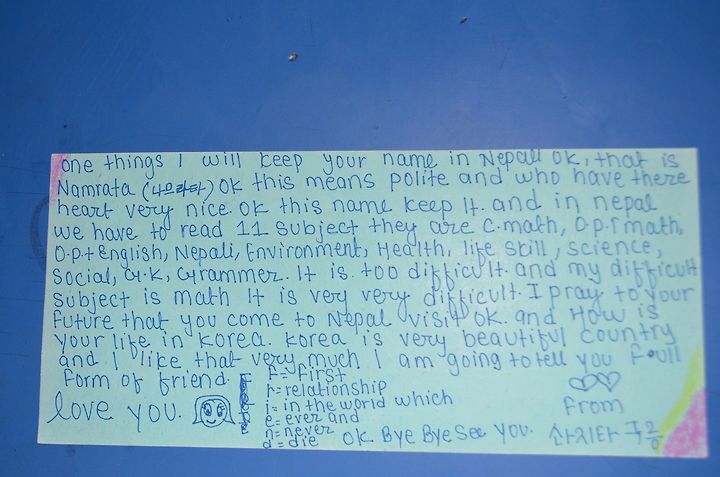 one things I will keep your name in Nepali ok, that is
Namrata (나므라타) ok this means polite and who have there
heart very nice. ok this name keep It. and in nepal
we have to read 11 subject they are C.math, O.p.T math,
O.p.t English, Nepali, Environment, Health, life skill, science,
Social, G.K, Grammer. It is too difficult. and my difficult
Subject is math It is very very difficult. I pray to your
future that you come to Nepal visit ok. and How is
your life in korea. korea is very beautiful country
and I like that very much I am going to tell you full
form of friend
f = first
r = relationship
i = in the world which
e = ever and
n = never
d = die
love you.
ok Bye Bye See you.
From
산지타